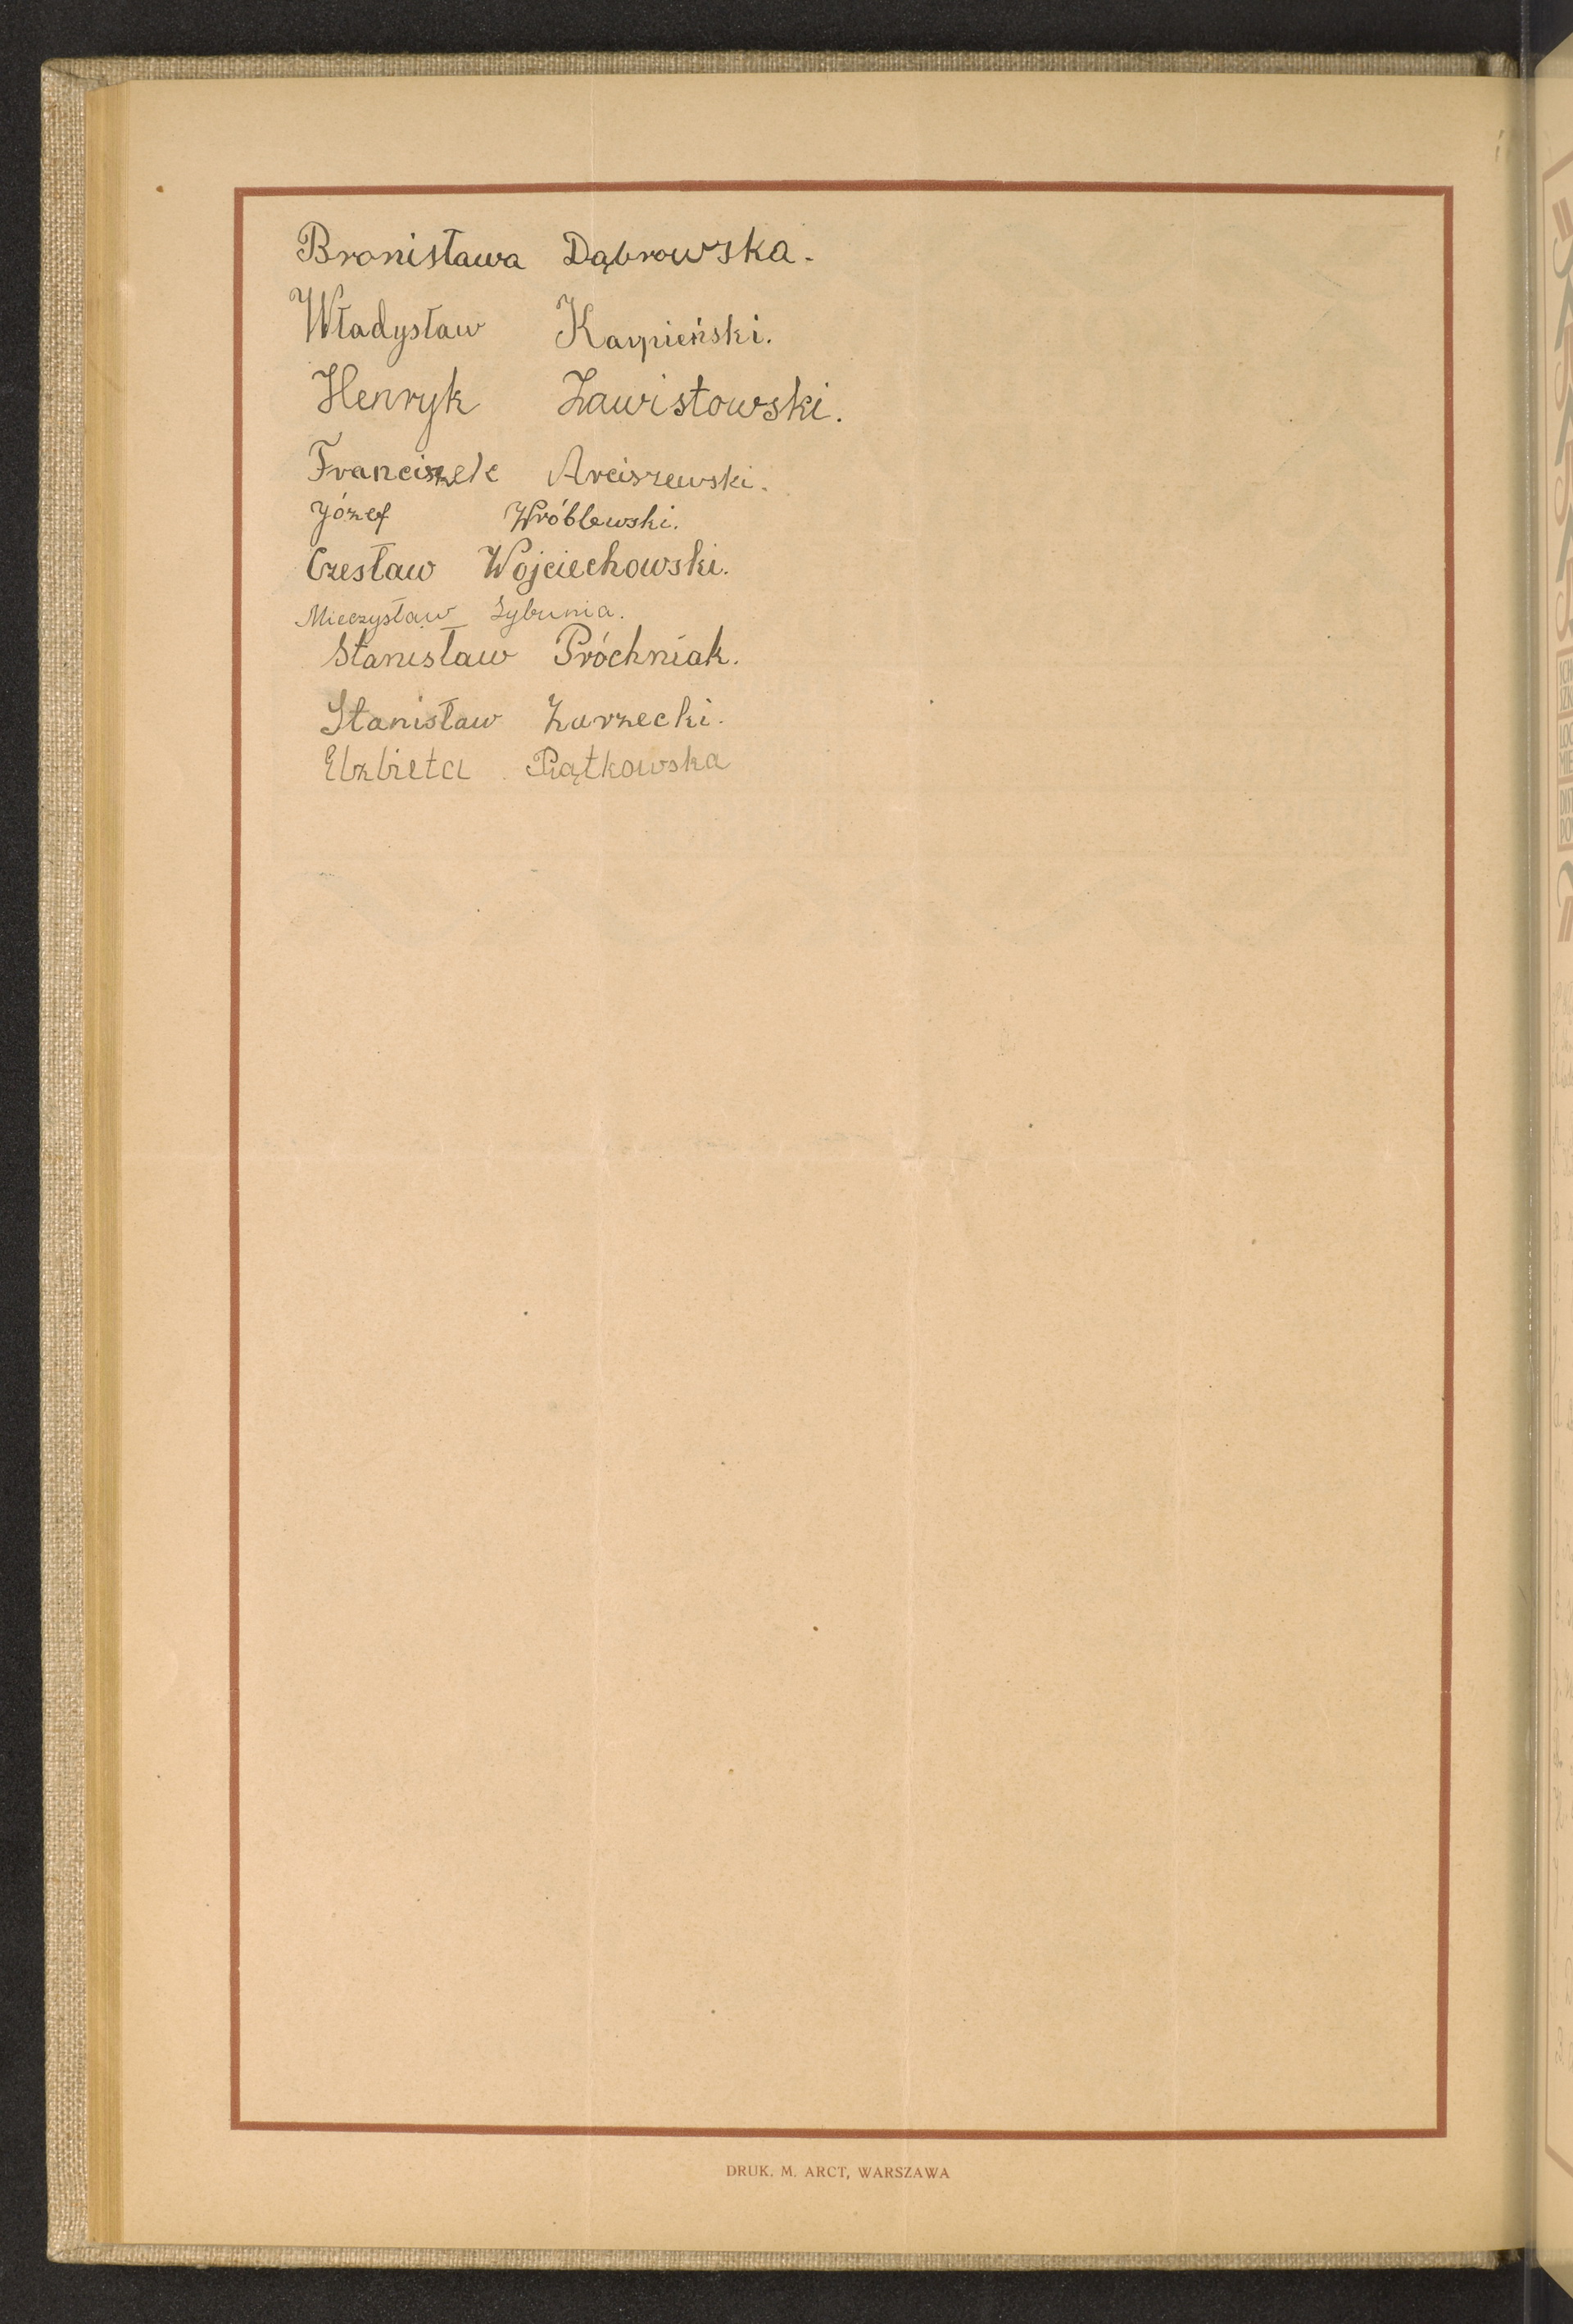 Bronisława Dąbrowska.
Władysław Karpieński.
Henryk Zawistowski.
Franciszek Arciszewski.
Józef Wróblewski.
Czesław Wojciechowski.
Mieczysław
Stanisław Próchniak.
Stanisław Zarzecki.
Elzbieta Piątkowska
DRUK. M. ARCT, WARSZAWA